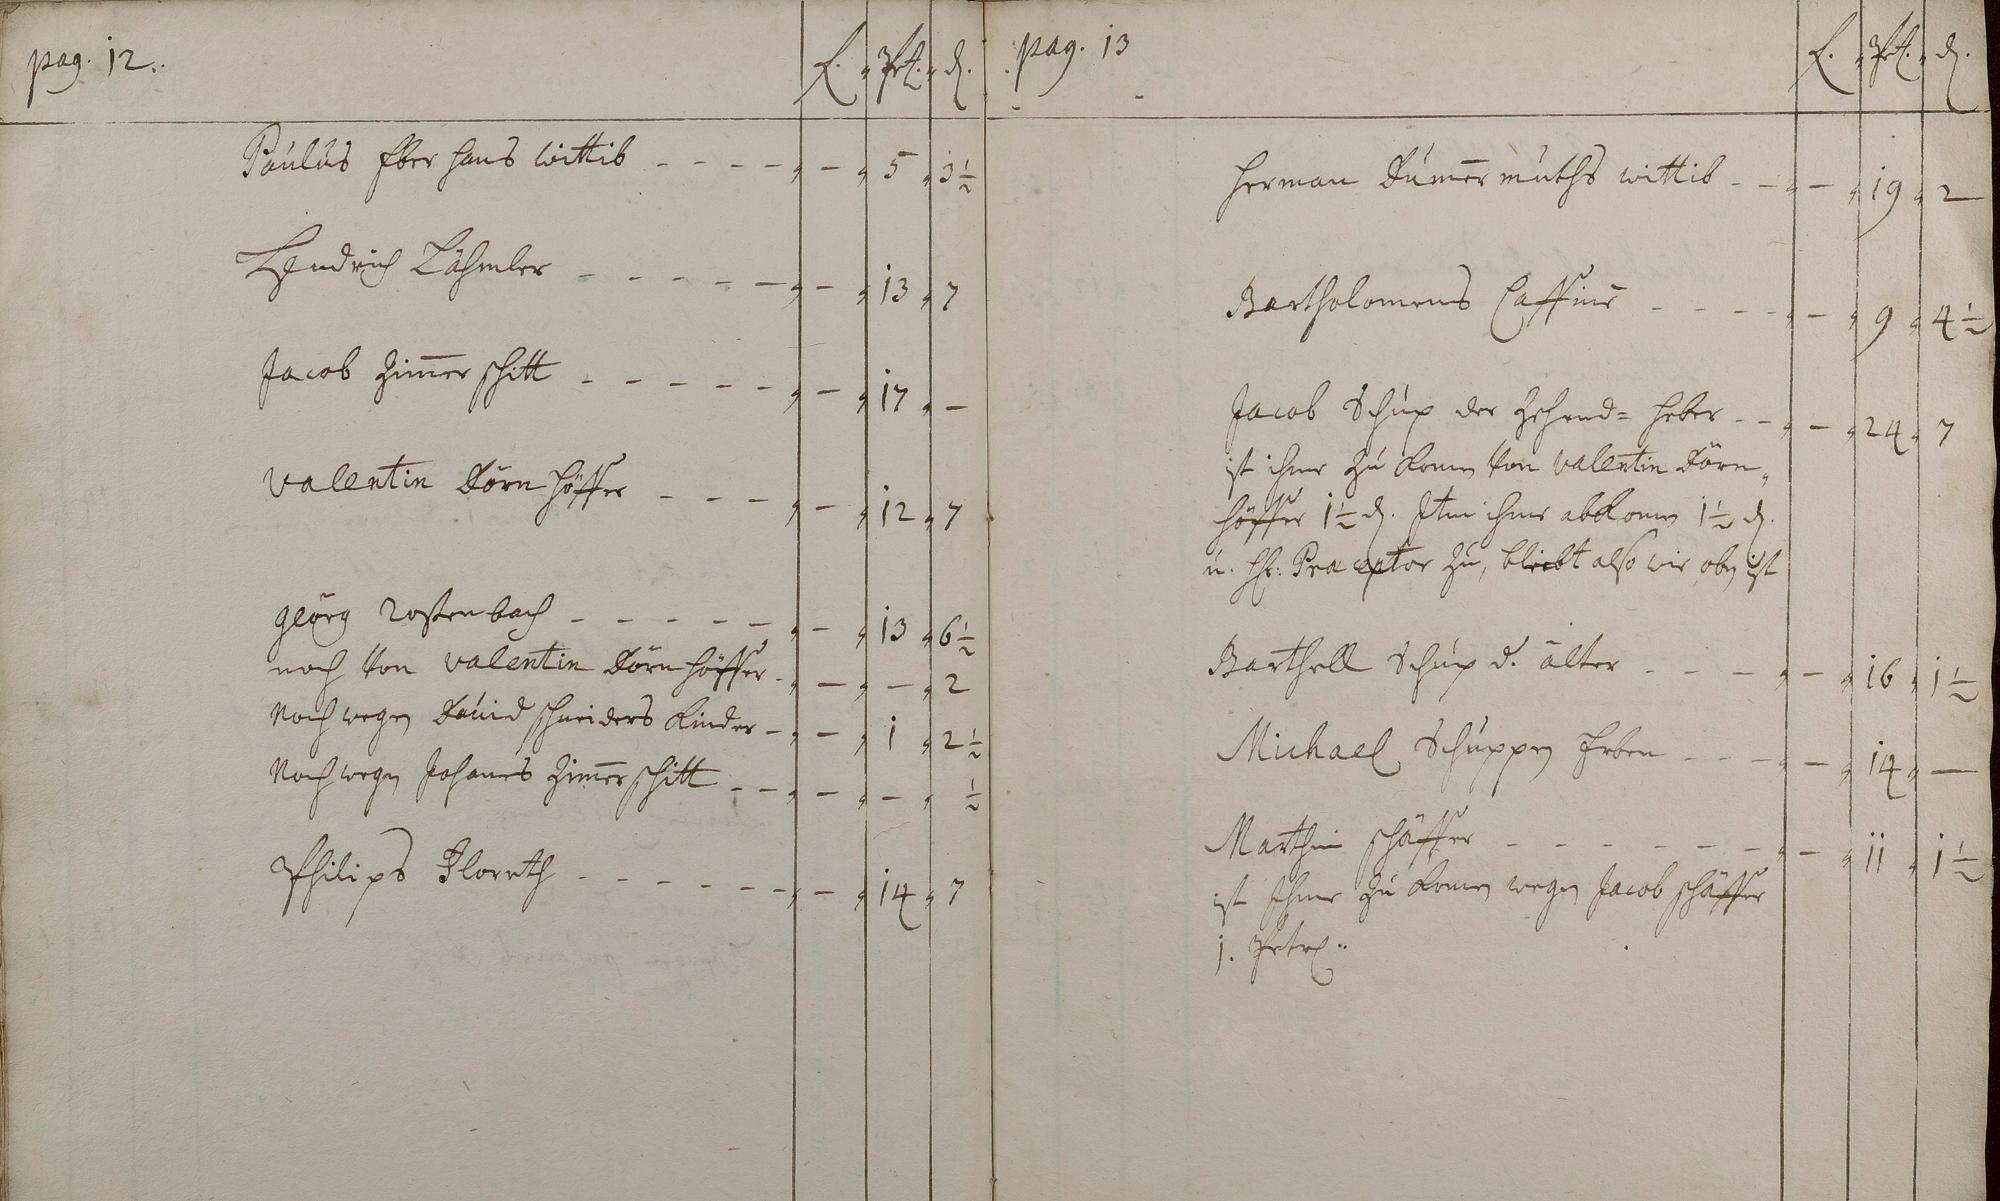 pag. 12.
fl. Pet. d.
Paulus Eberhans wittib - - - - - 5 3½
Hendrich Löhmler - - - - - 13 7
Jacob Zim̄erschitt - - - - - 17 -
Valentin Dörnhöffer - - - - 12 7
Geörg Rossenbach - - - - - 13 6½
noch von Valentin Dörnhöffer - - - 2
Noch wegen David schneiders Kinder - - 1 2½
Noch wegen Johannes Zim̄erschitt - - - - ½
Philips Floreth - - - - - - 14 7
pag. 13
fl. Pet. d.
Herman Dūmermuths wittib - - - 19 2
Bartholomeus Cassine - - - - - 9 4½
Jacob Schup der Zehend= heber - - - 24 7
ist ihme zu komen von Valentin Dörn„
höffer 1½ d. Jtm ihme abkomen 1½ d.
u. H: Praeceptor zu, bleibt also wie oben ist
Barthell Schup d. älter - - - - - 16 1½
Michael Schuppen Erben - - - - 14 -
Marthin schäffer - - - - - - - - 11 1½
ist Ihme zu komen wegen Jacob schäffer
1.